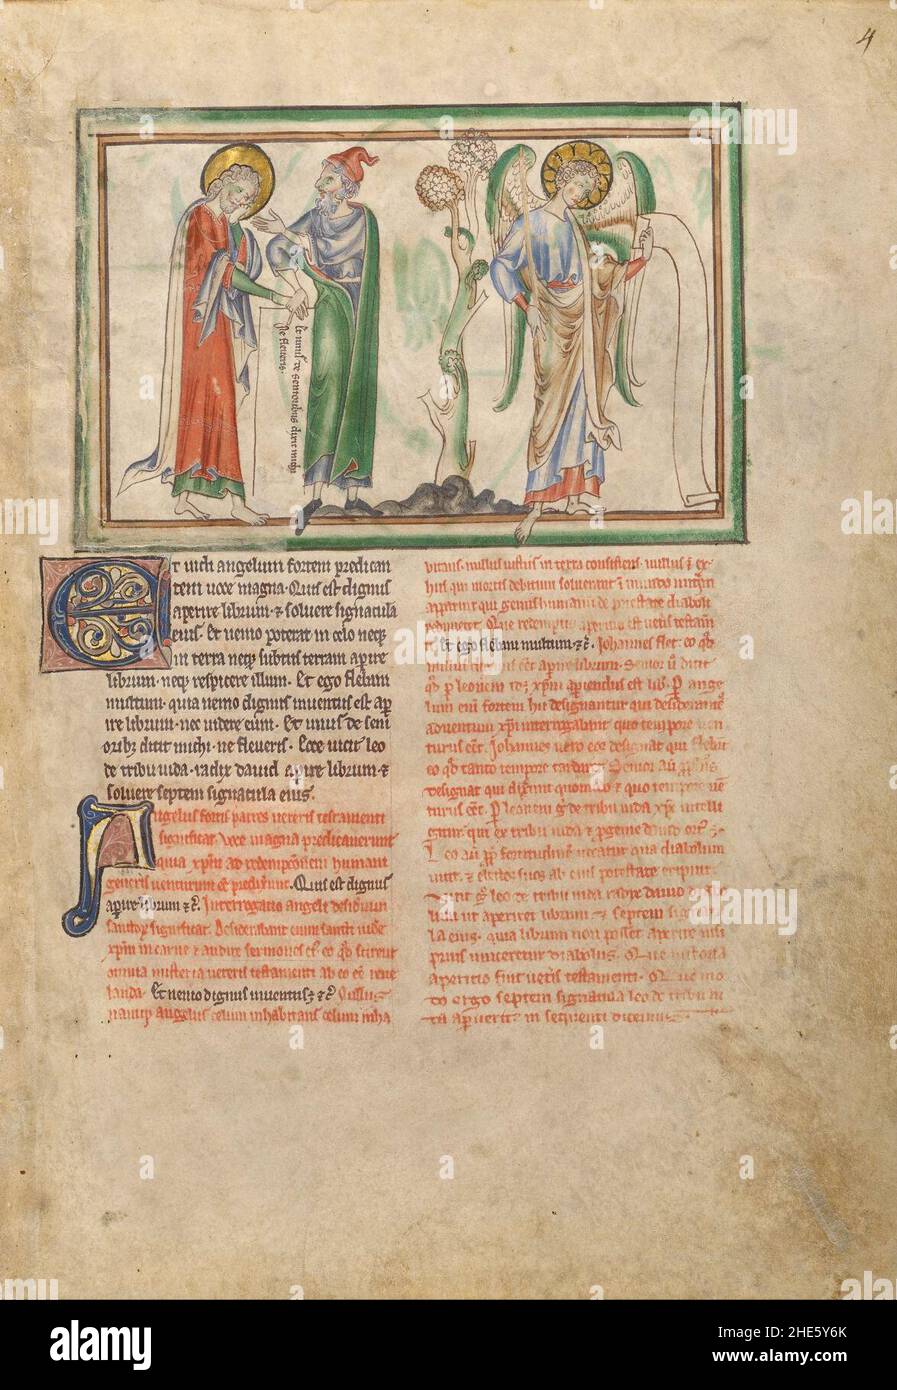 4
Et unus de senioribus dixit michi
Ne fleveris.
Et vidi angelum fortem predican
tem voce magna. Quis est dignus
aperire librum ⁊ solvere signacula
eius. Et nemo poterat in celo neque
in terra neque subtus terram aperire
librum. neque respicere illum. Et ego flebam
multum. quia nemo dignus inventus est ap
ire librum. nec videre eum. Et unus de seni
oribus dixit michi. ne fleveris. Ecce vicit leo
de tribu iuda. radix david aperire librum ⁊
solvere septem signacula eius.
Angelus fortis patres veteris testamenti
significat. Voce magna predicaverunt
quia xp̄m ad redemptionem humani
generis venturum predixerunt. Quis est dignus
aperire librum ⁊c̄. Interrogatio angeli desiderium
sanctorum significat. Desiderabant enim sancti videre
xp̄m in carne ⁊ audire sermones eius eo qd̄ scirent
omnia misteria veteris testamenti ab eo esse reve
landa. Et nemo dignus inventus ⁊c̄. Nullus
namque angelus celum inhabitans celum inha
bitans. nullus iustus in terra consistens. nullus ex
his qui mortis debitum solverant in mundo
apparuit qui genus humanum de potestate diaboli
. Et ego flebam multum. ⁊c̄. Iohannes flet. eo qd̄
nullus aperire librum. Senior dicit
qd̄ per leonem xp̄m aperiendus est liber. Per ange
lum enim fortem hii designantur qui desiderantes
adventum xp̄i interrogabant quo tempore ven
turus esset. Iohannes vero eos designat qui flebant
eo qd̄ tanto tempore tardaret. Senior autem
designat qui dixerunt quomodo ⁊ quo tempore ven
turus esset. Per leonem de tribu iuda xp̄c intelli
gitur. qui ex tribu iuda ⁊ progenie david ortus est.
Leo autem propter fortitudinem vocatur quia diabolum
vicit. ⁊ electos suos ab eius potestate eripuit.
Vicit ergo leo de tribu iuda radix david
ut aperiret librum ⁊ septem signacu
la eius. quia librum non posset aperire nisi
prius vinceretur diabolus. Que victoria
apercio fuit veteris testamenti. Quo mo
do ergo septem signacula leo de tribu iu
da aperuerit. in sequenti dicemus.
alamy
Image ID: 2HE5Y6K
www.alamy.com